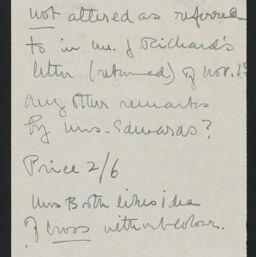 not altered as referred
to in Mr. J. Richard's
letter (returned) of Nov. 17
any other remarks
by Mrs. Edwards?
Price 2/6
Mrs B likes idea
of cross without colour.